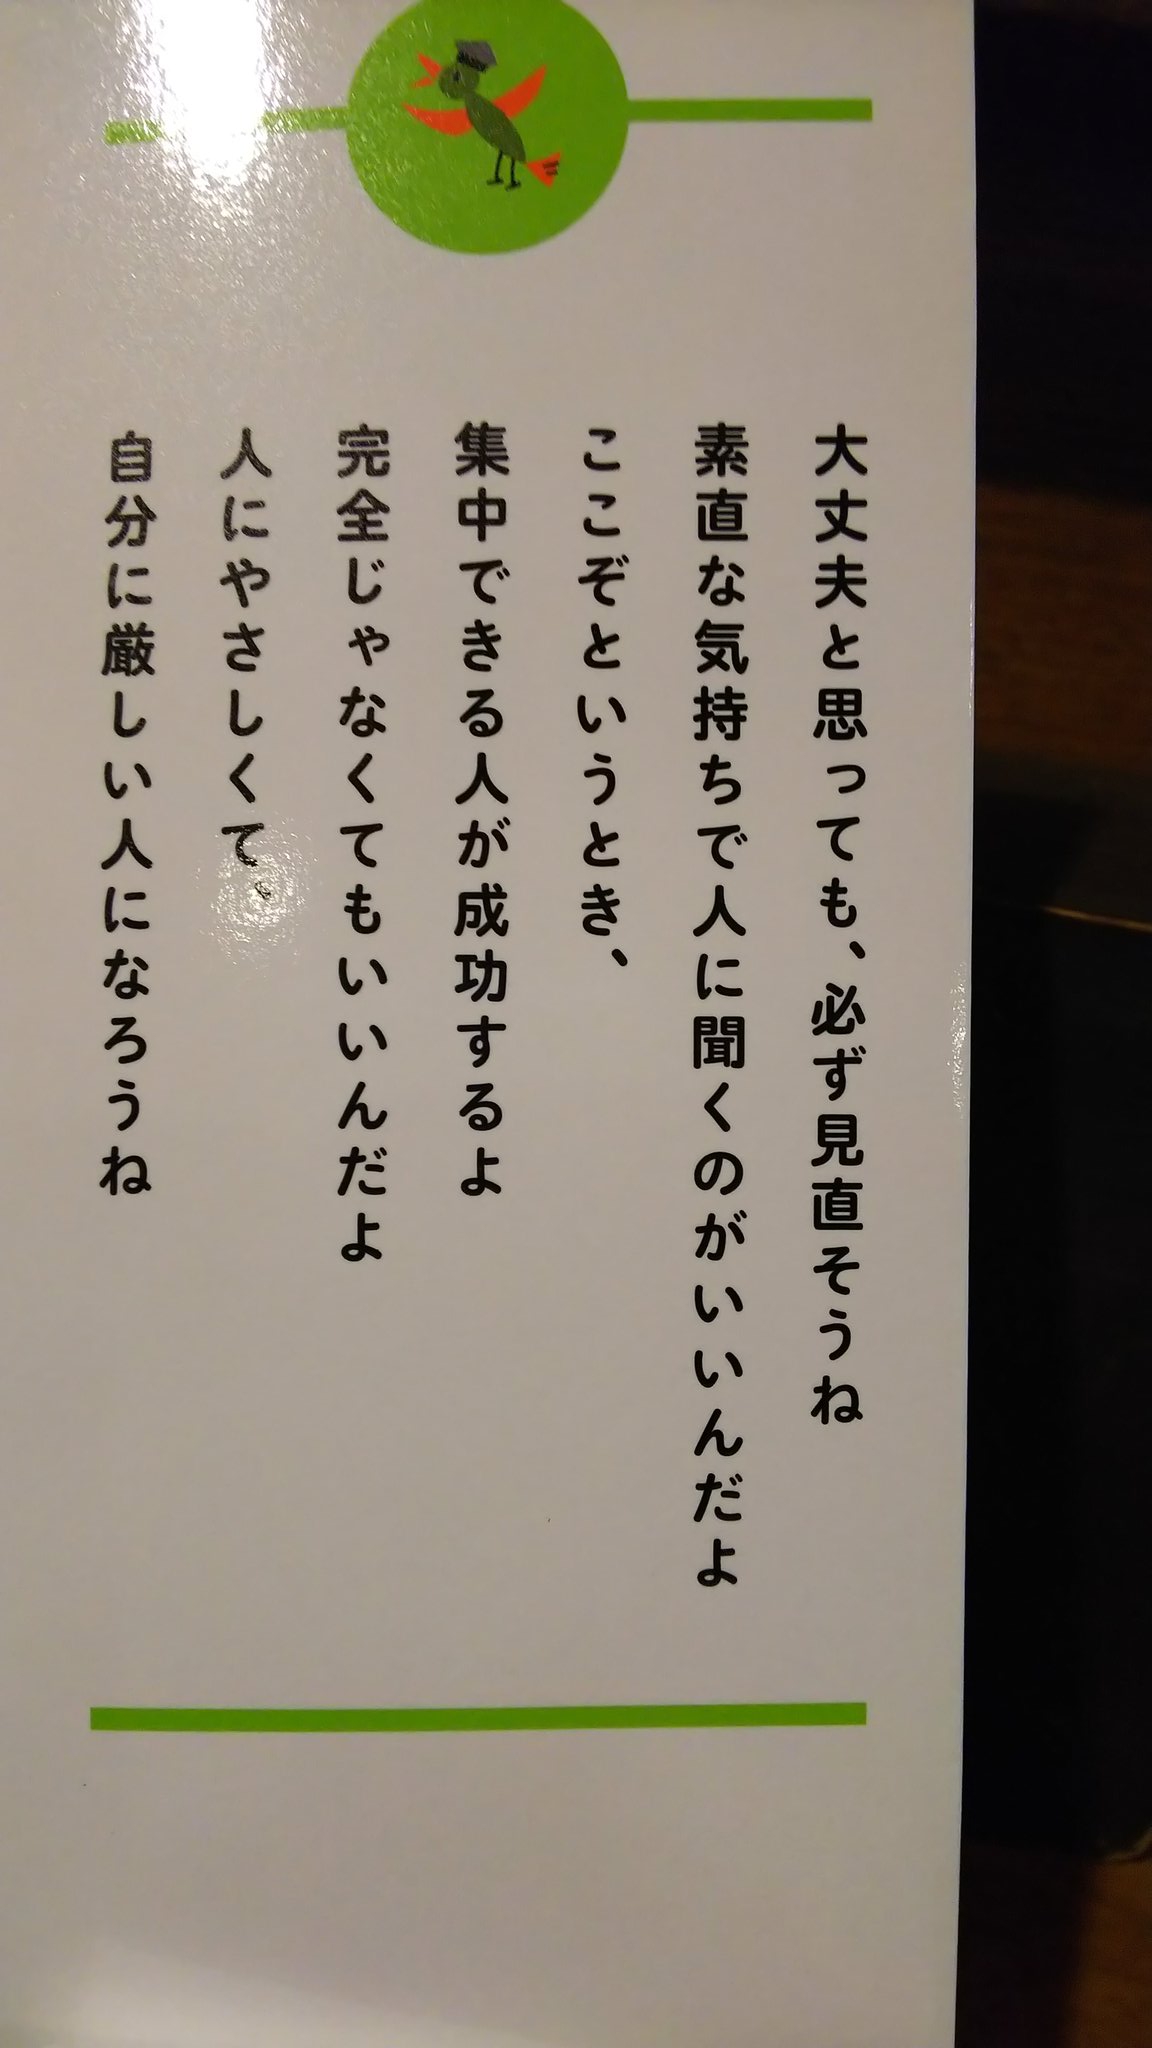 大丈夫と思っても、必ず見直そうね
素直な気持ちで人に聞くのがいいんだよ
ここぞというとき、
集中できる人が成功するよ
完全じゃなくてもいいんだよ
人にやさしくて、
自分に厳しい人になろうね